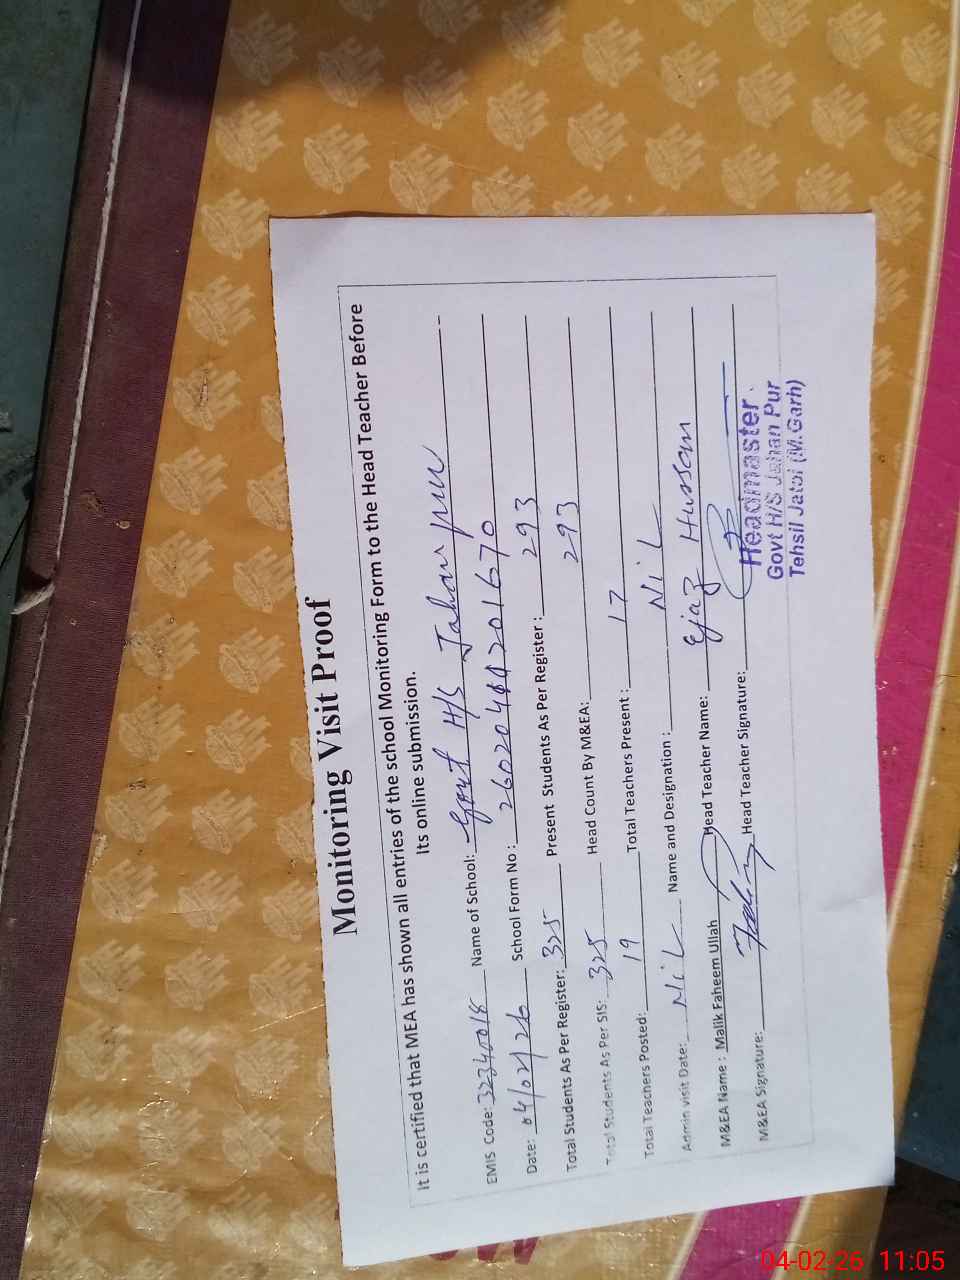 Monitoring Visit Proof
It is certified that MEA has shown all entries of the school Monitoring Form to the Head Teacher Before
Its online submission.
EMIS Code: 32340018 Name of School: Govt H/S Jahan pur
Date: 04/02/26 School Form No : 2602044201670
Total Students As Per Register: 325 Present Students As Per Register : 293
Total Students As Per SIS: 325 Head Count By M&EA: 293
Total Teachers Posted: 19 Total Teachers Present : 17
Admin visit Date: NiL Name and Designation : NiL
M&EA Name : Malik Faheem Ullah Head Teacher Name: Ejaz Hussan
M&EA Signature: Head Teacher Signature:
Headmaster
Govt H/S Jahan Pur
Tehsil Jatoi (M.Garh)
04-02-26 11:05